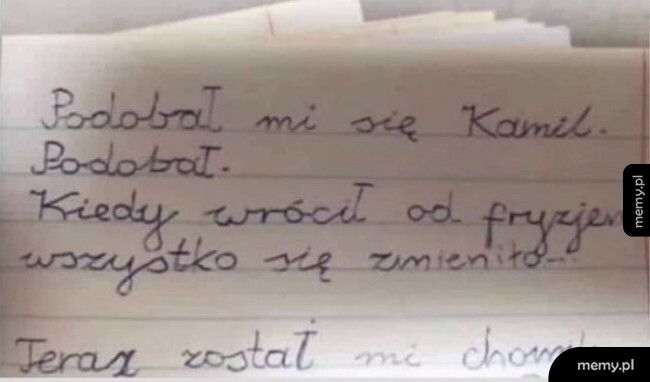 Podobał mi się Kamil.
Podobał.
Kiedy wrócił od
wszystko się zmieniło...
Teraz został mi
memy.pl
memy.pl